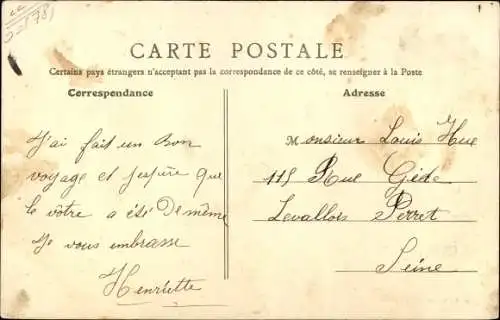 CARTE POSTALE
Certains pays étrangers n'acceptant pas la correspondance de ce côté, se renseigner à la Poste
Correspondance
J'ai fait un Bon
voyage et j'espère que
le vôtre a été De même
Je vous embrasse
Henriette
Adresse
Monsieur Louis Hue
115 Rue Gide
Levallois Perret
Seine